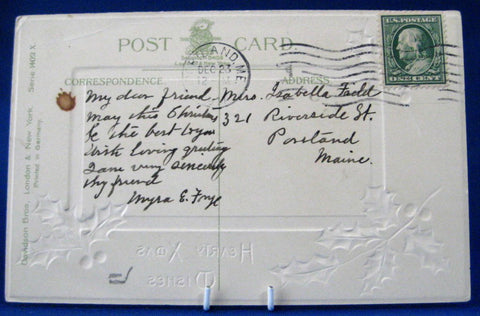 POST CARD.
U.S. POSTAGE
ONE CENT
AND ME
DEC 23
CORRESPONDENCE.
ADDRESS.
My dear friend,
may this Christmas
be the best to you
With loving greeting
I am very sincerely
thy friend
Myra E. Frye
Mrs. Isabella
321 Riverside St.
Portland
Maine.
Davidson Bros., London & New York. Serie 1402 X.
Printed in Germany.
HEARTY XMAS
WISHES